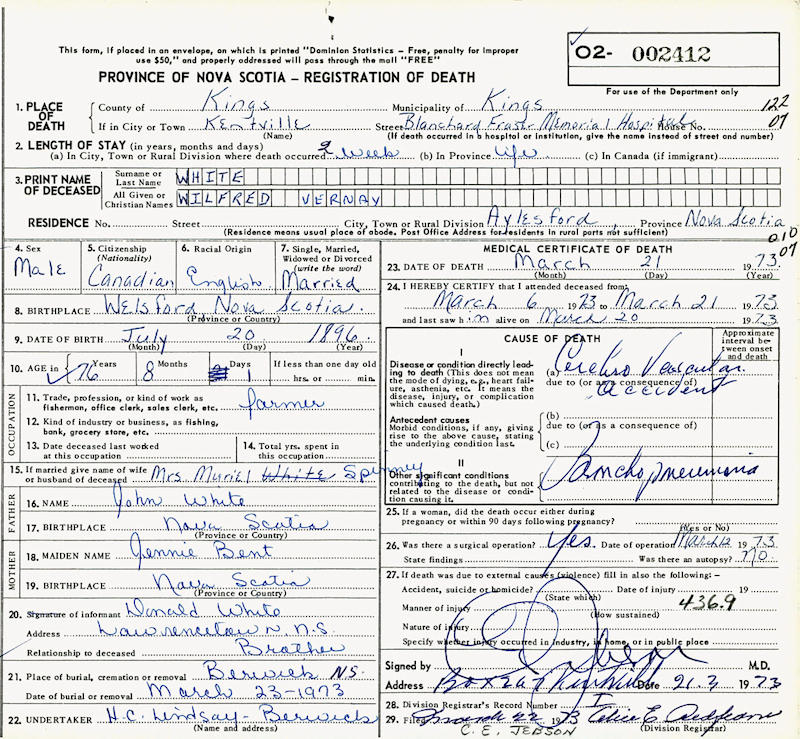 This form, if placed in an envelope, on which is printed "Dominion Statistics – Free, penalty for improper
use $50," and properly addressed will pass through the mail "FREE"
PROVINCE OF NOVA SCOTIA – REGISTRATION OF DEATH
O2- 002412
For use of the Department only
1. PLACE OF DEATH
County of Kings Municipality of Kings 122
If in City or Town Kentville Street Blanchard Fraser Memorial Hospital House No. 07
(Name) (If death occurred in a hospital or institution, give the name instead of street and number)
2. LENGTH OF STAY (in years, months and days)
(a) In City, Town or Rural Division where death occurred 2 week (b) In Province life (c) In Canada (if immigrant)
3. PRINT NAME OF DECEASED
Surname or Last Name WHITE
All Given or Christian Names WILFRED VERNAY
RESIDENCE No. Street City, Town or Rural Division Aylesford Province Nova Scotia
(Residence means usual place of abode. Post Office Address for residents in rural ports not sufficient) 010
07
4. Sex Male
5. Citizenship (Nationality) Canadian
6. Racial Origin English
7. Single, Married, Widowed or Divorced (write the word) Married
8. BIRTHPLACE Welsford Nova Scotia.
(Province or Country)
9. DATE OF BIRTH July 20 1896
(Month) (Day) (Year)
10. AGE in 76 Years 8 Months 1 Days If less than one day old hrs. or min.
OCCUPATION
11. Trade, profession, or kind of work as fishermon, office clerk, sales clerk, etc. farmer
12. Kind of industry or business, as fishing, bank, grocery store, etc.
13. Date deceased last worked at this occupation
14. Total yrs. spent in this occupation
15. If married give name of wife or husband of deceased Mrs Muriel White Spinney
FATHER
16. NAME John White
17. BIRTHPLACE Nova Scotia
(Province or Country)
MOTHER
18. MAIDEN NAME Jennie Bent
19. BIRTHPLACE Nova Scotia
(Province or Country)
20. Signature of informant Donald White
Address Lawrencetown N.S
Relationship to deceased Brother
21. Place of burial, cremation or removal Berwick NS.
Date of burial or removal March 23-1973
22. UNDERTAKER H.C. Lindsay - Berwick
(Name and address)
MEDICAL CERTIFICATE OF DEATH
23. DATE OF DEATH March 21 1973
(Month) (Day) (Year)
24. I HEREBY CERTIFY that I attended deceased from
March 6 1973 to March 21 1973
and last saw him alive on March 20 1973
CAUSE OF DEATH
Approximate interval between onset and death
I
Disease or condition directly leading to death (This does not mean the mode of dying, e.g., heart failure, asthenia, etc. It means the disease, injury, or complication which caused death.)
(a) Cerebro Vascular
due to (or as a consequence of) Accident
Antecedent causes
Morbid conditions, if any, giving rise to the above cause, stating the underlying condition last.
(b)
due to (or as a consequence of)
(c)
II
Other significant conditions contributing to the death, but not related to the disease or condition causing it.
25. If a woman, did the death occur either during
pregnancy or within 90 days following pregnancy?
(Yes or No)
26. Was there a surgical operation? Yes. Date of operation March 12 1973
State findings Was there an autopsy? No.
27. If death was due to external causes (violence) fill in also the following: –
Accident, suicide or homicide? Date of injury 19
(State which)
Manner of injury 436.9
(How sustained)
Nature of injury
Specify whether injury occurred in industry, in home, or in public place
Signed by M.D.
Address Date 21.3 1973
28. Division Registrar's Record Number
29. Filed March 22 1973
C. E. JEBSON (Division Registrar)